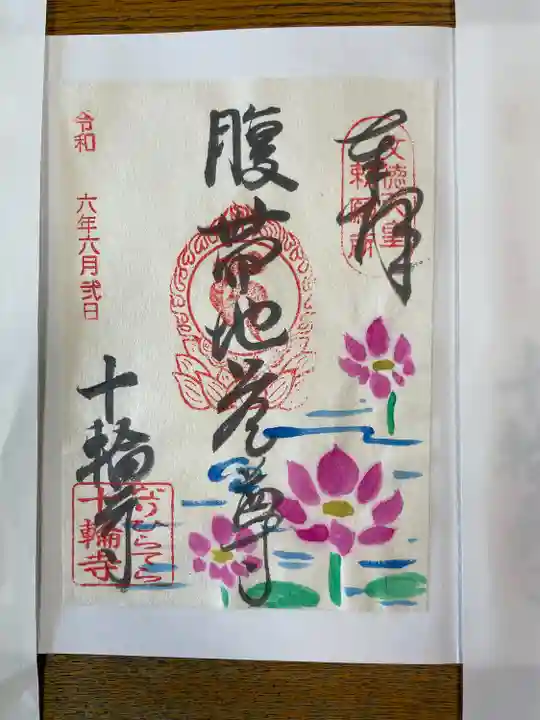 奉拝
文徳天皇
勅願所
腹帯地蔵尊
十輪寺
なりひらてら
十輪寺
令和 六年六月弐日